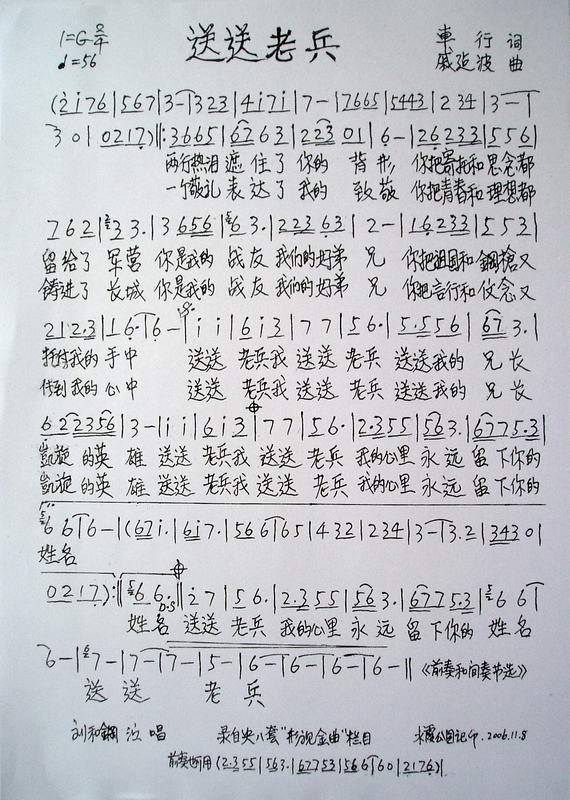 1=G 2/4 送送老兵 車行 词
♩=56 戚延波 曲
(2176|567|3-|323|4171|7-|7665|5443|234|3-|
301|0217)‖:3665|6763|22301|6-|26233|556|
两行热泪遮住了你的背影 你把寄托和思念都
一个敬礼表达了我的致敬 你把青春和理想都
762|33.|3656|63.|22363|2-|16233|553|
留给了军营 你是我的战友我们的好弟兄 你把祖国和鋼槍又
铸进了长城 你是我的战友我们的好弟兄 你把言行和信念又
212.3|16.|6-|ii|6i3|77|56.|5.556|673.|
托付我的手中 送送老兵我送送老兵送送我的兄长
传到我的心中 送送老兵我送送老兵送送我的兄长
622356|3-|ii|6i3|77|56.|2.355|563.|6775.3|
凱旋的英雄送送老兵我送送老兵我的心里永远留下你的
凱旋的英雄送送老兵我送送老兵我的心里永远留下你的
66|6-|(67i.|6i7.|566|65|432|234|3-|3.2|3430|
姓名
0217):‖66.‖i7|56.|2.355|563.|6775.3|66|
D.S
姓名送送老兵我的心里永远留下你的姓名
6-|7-|7-|7-|5-|6-|6-|6-|6-‖《前奏和间奏节选》
送送老兵
刘和鋼 演唱 录自央八套"影视金曲"栏目 记. 2006.11.8
前奏也可用(2.355|563.|67753|566|60|2176)|